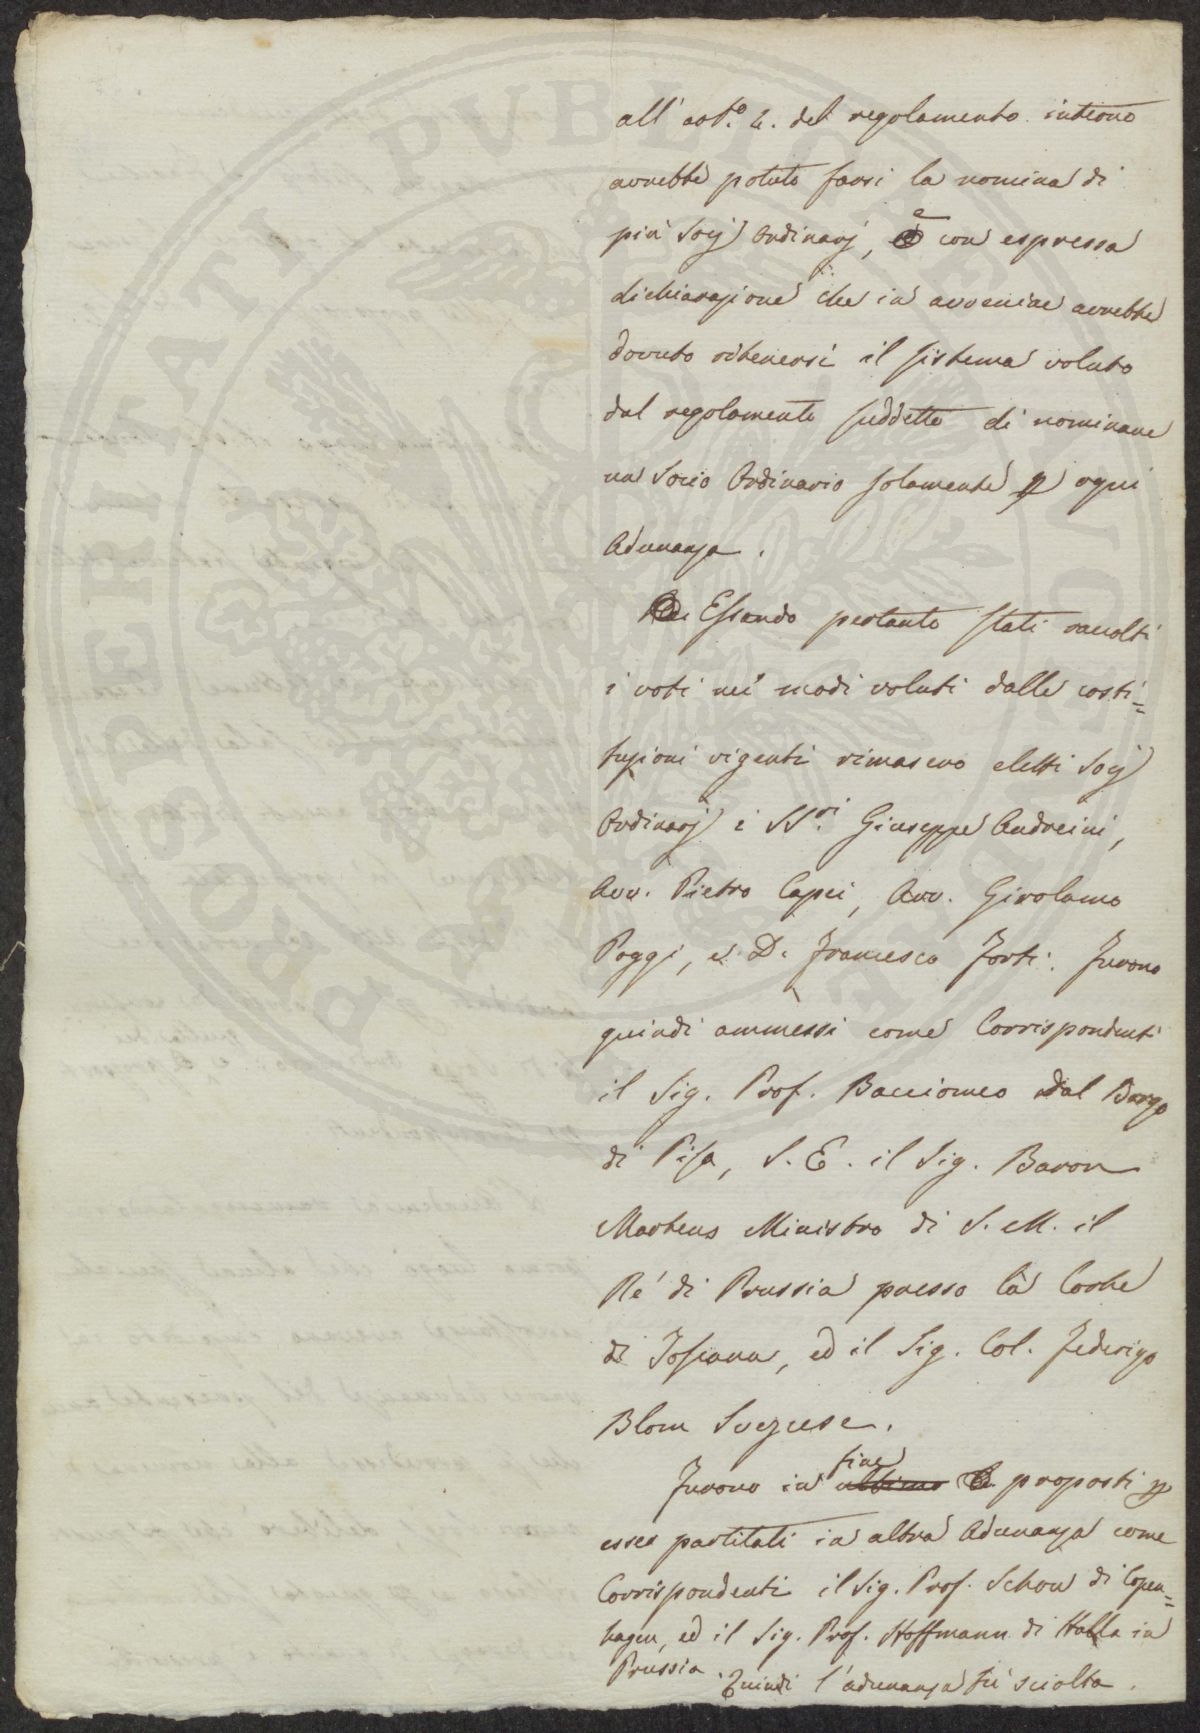 all' art.° 4. del regolamento interno
avrebbe potuto farsi la nomina di
più Socj Ordinarj, e con espressa
dichiarazione che in avvenire avrebbe
dovuto ritenersi il sistema voluto
dal regolamento suddetto di nominare
un Socio Ordinario solamente p ogni
Adunanza.
Essendo pertanto stati raccolti
i voti nei modi voluti dalle costi=
tuzioni vigenti rimasero eletti Socj
Ordinarj i SS.ri Giuseppe Andreini,
Avv. Pietro Capei, Avv. Girolamo
Poggi, e D. Francesco Forti. Furono
quindi ammessi come Corrispondenti
il Sig. Prof. Bacciomeo Dal Borgo
di Pisa, S. E. il Sig. Baron
Martens Ministro di S. M. il
Ré di Prussia presso la Corte
di Toscana, ed il Sig. Col. Federigo
Blom Svezzese.
Furono in ultimo fine proposti p
esser partitati in altra Adunanza come
Corrispondenti il Sig. Prof. Schow di Copen=
hagen, ed il Sig. Prof. Hoffmann di Halla in
Prussia. Quindi l'adunanza fù sciolta.
PROSPERITATI PVBLICAE AVGENDAE